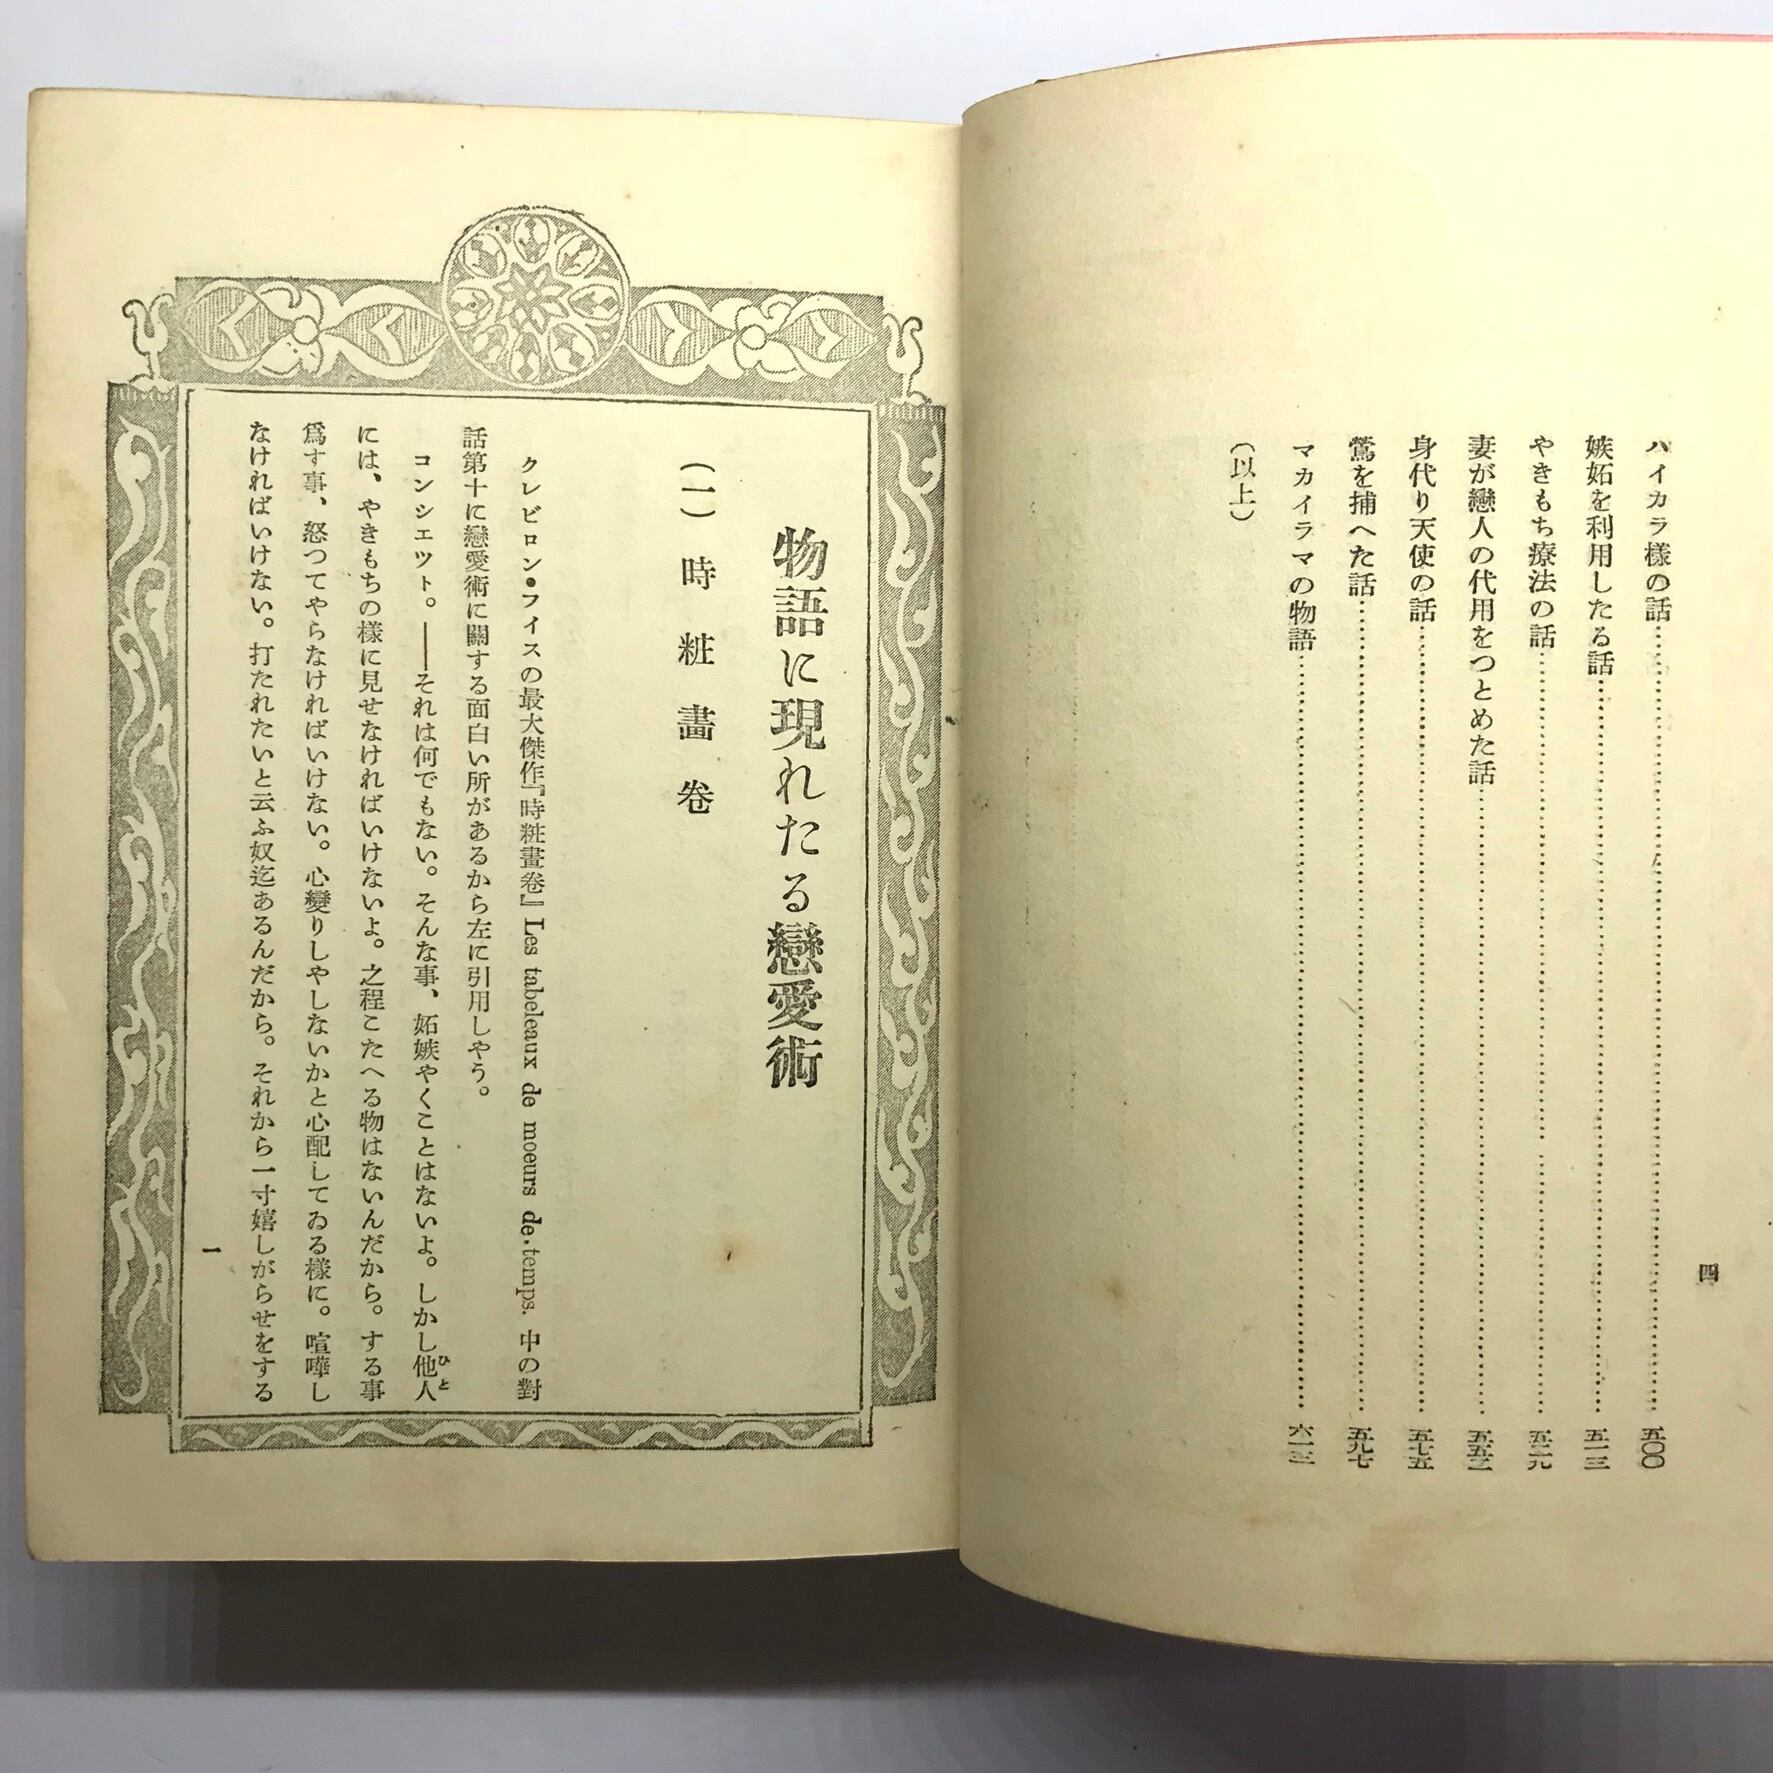 四
ハイカラ樣の話……五〇〇
嫉妬を利用したる話……五一三
やきもち療法の話……五二九
妻が戀人の代用をつとめた話……五五二
身代り天使の話……五七五
鶯を捕へた話……五九七
マカイラマの物語……六一三
（以上）
物語に現れたる戀愛術
（一）時粧畫卷
クレビロン・フイスの最大傑作『時粧畫卷』Les tabeleaux de moeurs de.temps. 中の對
話第十に戀愛術に關する面白い所があるから左に引用しやう。
コンシェツト。――それは何でもない。そんな事、妬嫉やくことはないよ。しかし他人ひと
には、やきもちの樣に見せなければいけないよ。之程こたへる物はないんだから。する事
爲す事、怒つてやらなければいけない。心變りしやしないかと心配してゐる樣に。喧嘩し
なければいけない。打たれたいと云ふ奴迄あるんだから。それから一寸嬉しがらせをする
一